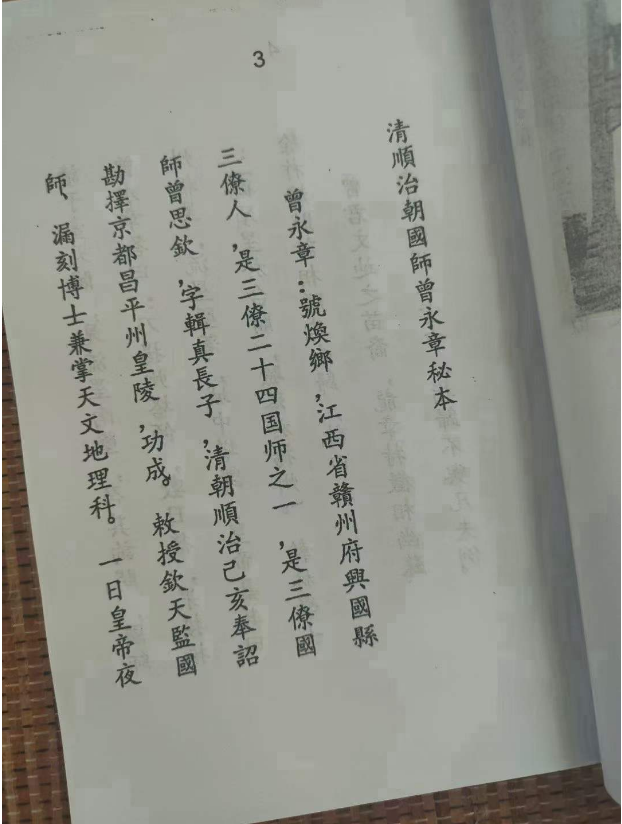 3
清順治朝國師曾永章秘本
曾永章：號煥鄉，江西省贛州府興國縣
三僚人，是三僚二十四国师之一，是三僚國
師曾思欽，字輯真長子，清朝順治己亥奉詔
勘擇京都昌平州皇陵，功成。敕授欽天監國
師、漏刻博士兼掌天文地理科。一日皇帝夜